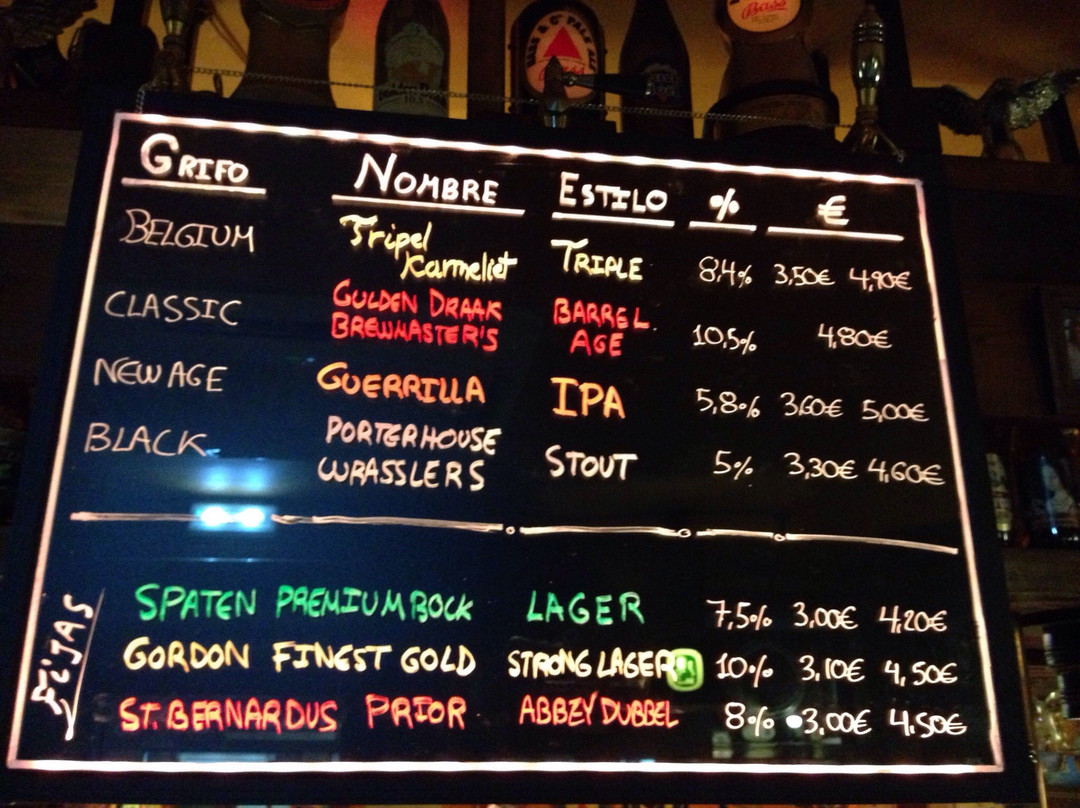 Bass
BASS & CO'S PALE ALE
Bass
GRIFO NOMBRE ESTILO % €
BELGIUM Tripel Karmeliet TRIPLE 8,4% 3,50€ 4,90€
CLASSIC GULDEN DRAAK BREWMASTER'S BARREL AGE 10,5% 4,80€
NEW AGE GUERRILLA IPA 5,8% 3,60€ 5,00€
BLACK PORTERHOUSE WRASSLERS STOUT 5% 3,30€ 4,60€
FIJAS
SPATEN PREMIUM BOCK LAGER 7,5% 3,00€ 4,20€
GORDON FINEST GOLD STRONG LAGER 10% 3,10€ 4,50€
ST. BERNARDUS PRIOR ABBEY DUBBEL 8% 3,00€ 4,50€